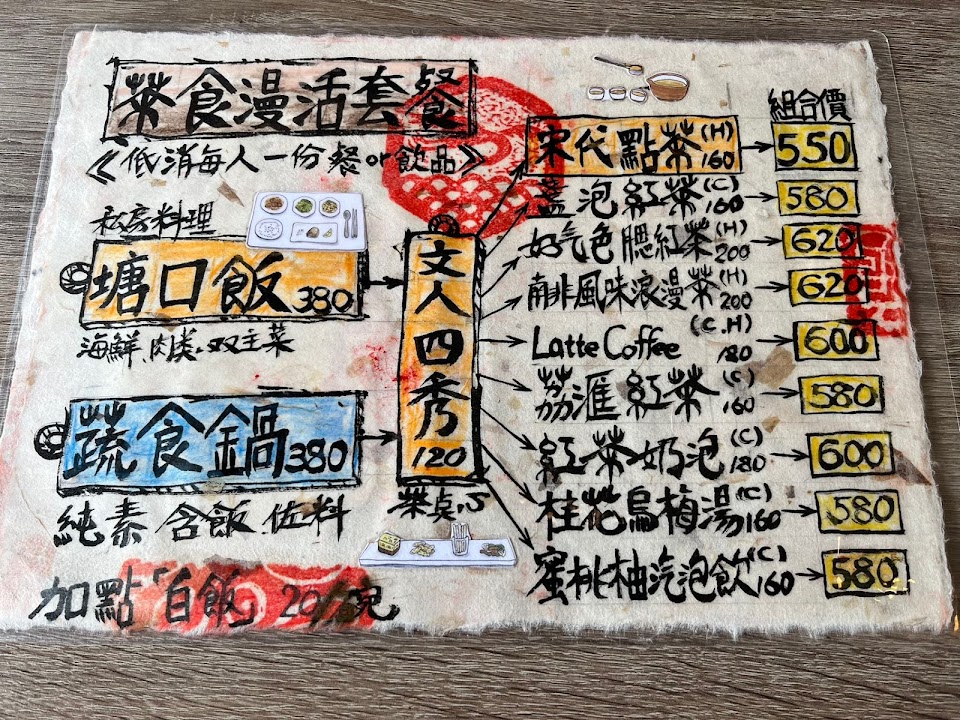 茶食漫活套餐
《低消每人一份餐or飲品》
私房料理
塘口飯 380
海鮮.肉类.双主菜
蔬食鍋 380
純素 含飯 佐料
加點「白飯」20/碗
文人四秀 120
茶桌.S
組合價
宋代點茶(H) 160 550
泡紅茶(C) 160 580
好气色腮紅茶(H) 200 620
南非風味浪漫茶(H) 200 620
Latte Coffee (C.H) 180 600
荔滙紅茶(C) 160 580
紅茶奶泡(C) 180 600
桂花烏梅湯(C) 160 580
蜜桃柚汽泡飲(C) 160 580